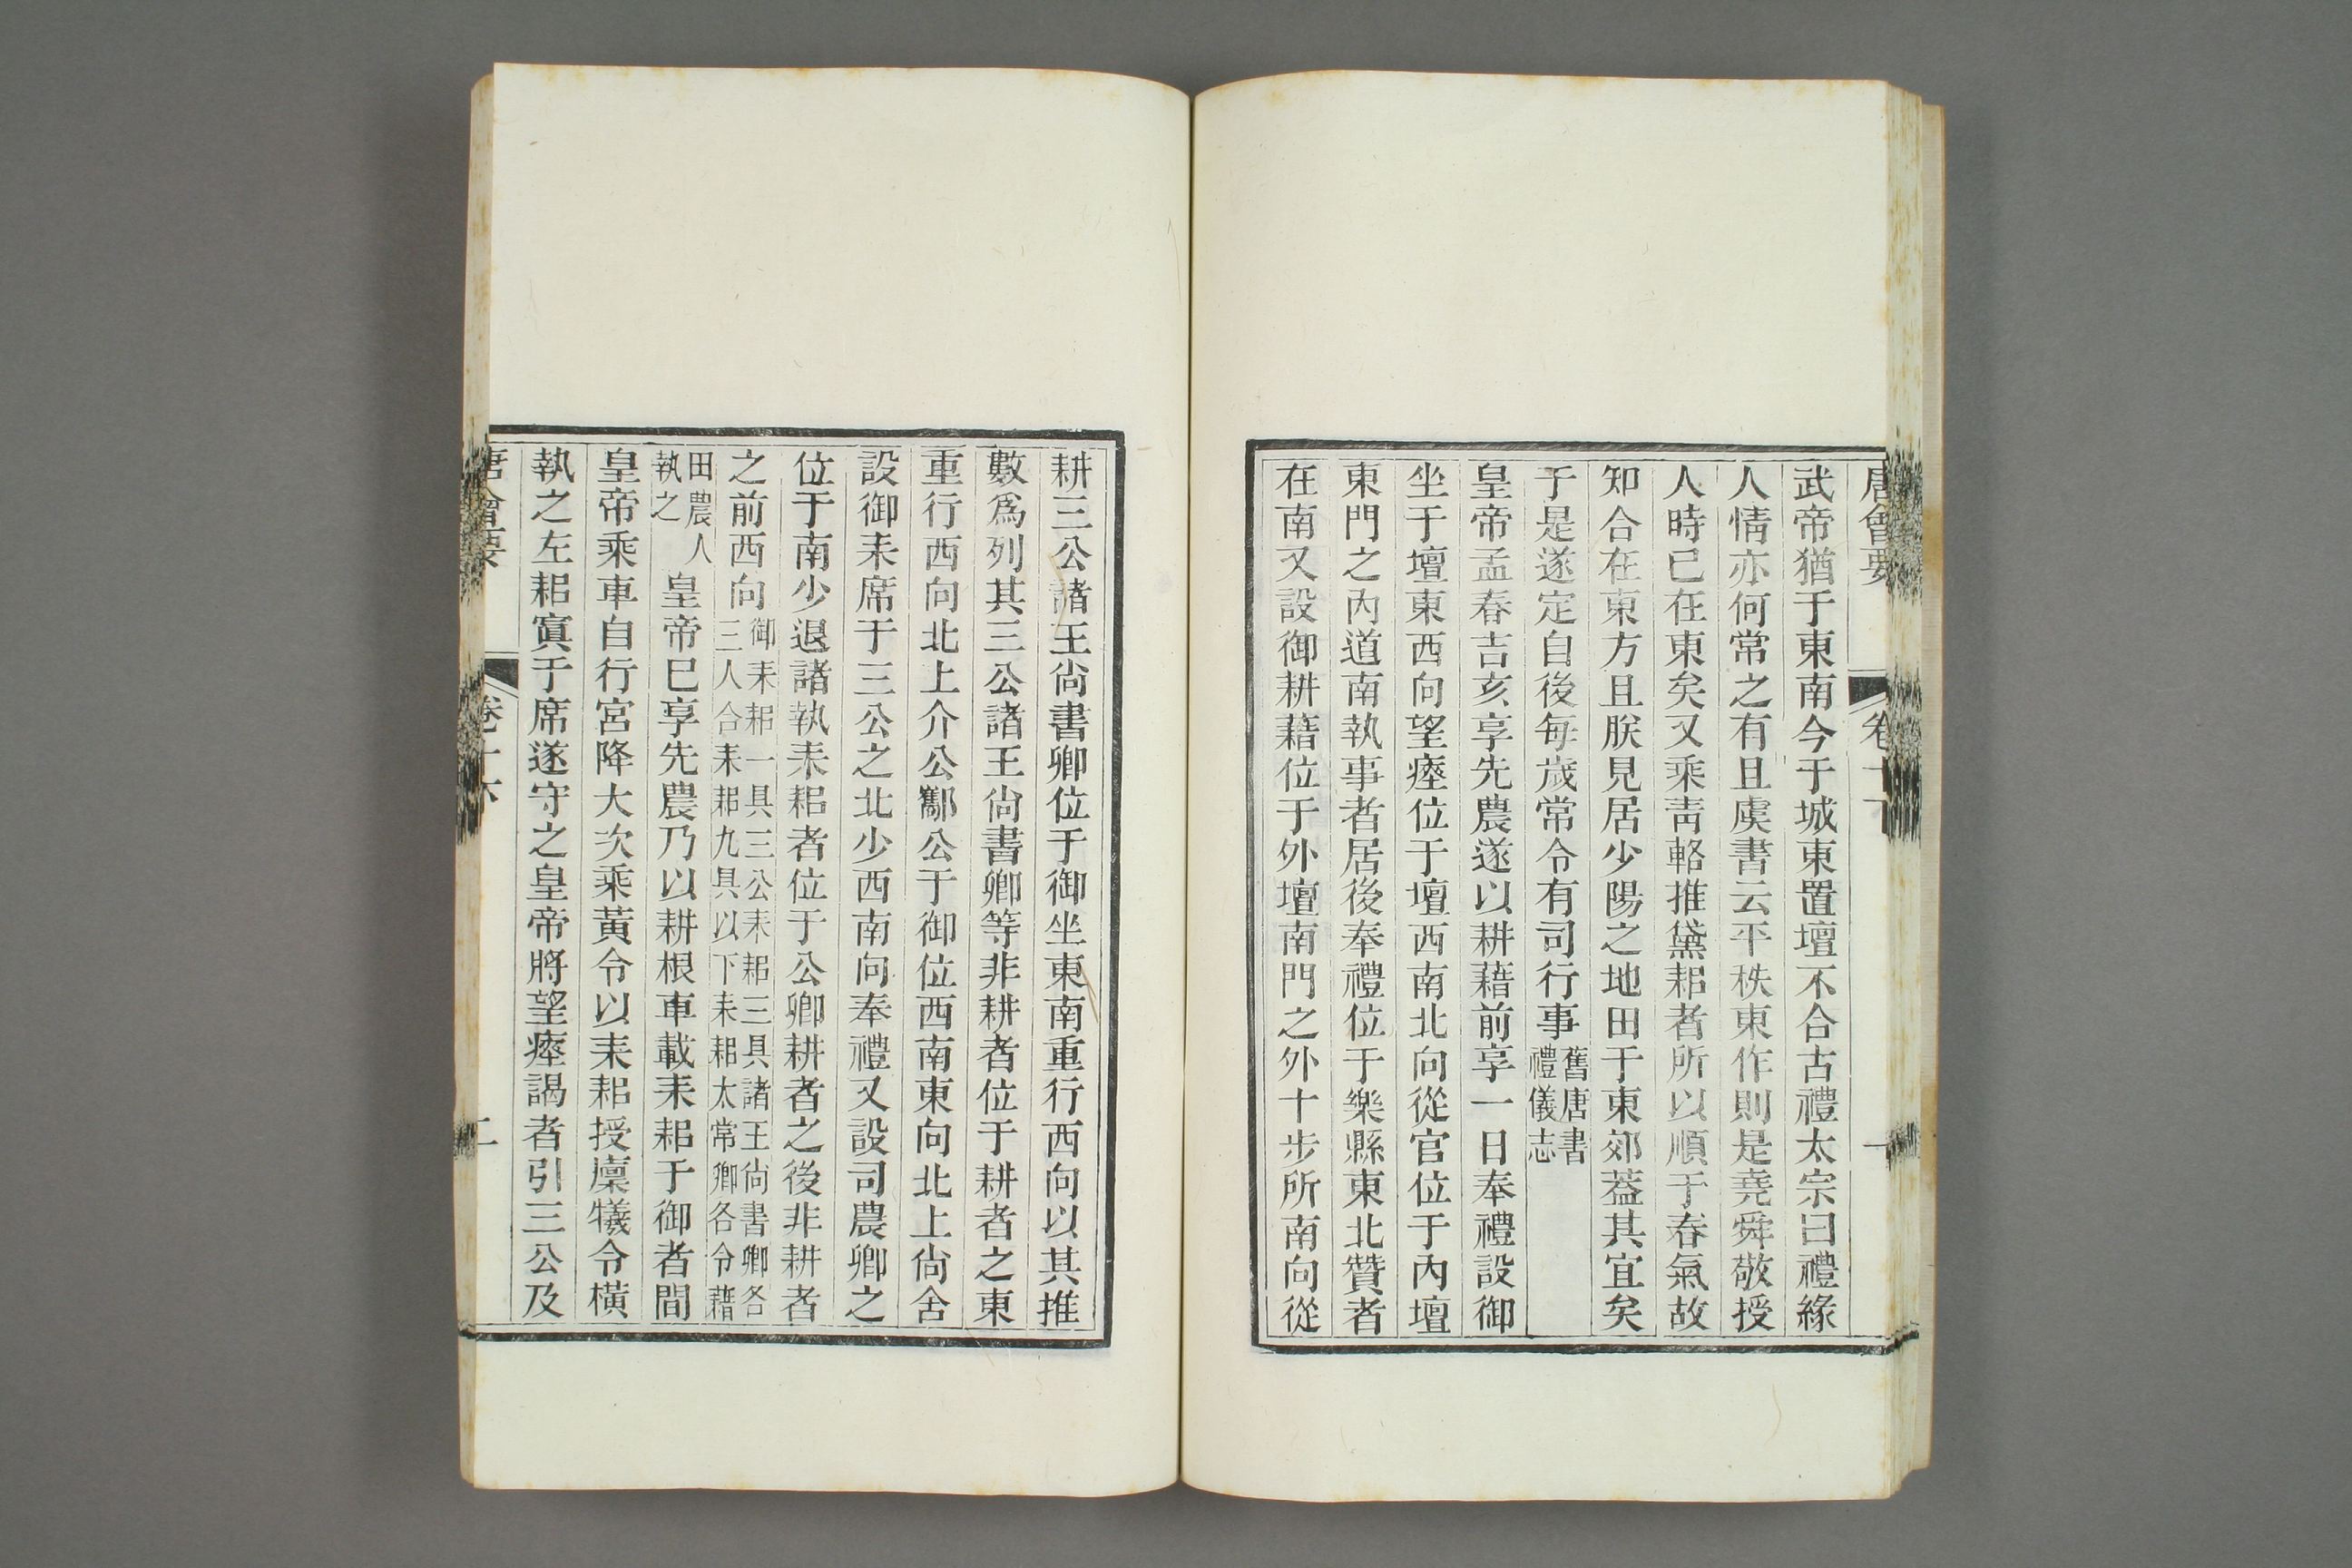 唐會要 卷十 一
武帝猶于東南今于城東置壇不合古禮太宗曰禮緣
人情亦何常之有且虞書云平秩東作則是堯舜敬授
人時已在東矣又乘靑輅推黛耜者所以順于春氣故
知合在東方且朕見居少陽之地田于東郊葢其宜矣
于是遂定自後每歲常令有司行事舊唐書
禮儀志
皇帝孟春吉亥享先農遂以耕藉前享一日奉禮設御
坐于壇東西向望瘞位于壇西南北向從官位于內壇
東門之內道南執事者居後奉禮位于樂縣東北贊者
在南又設御耕藉位于外壇南門之外十步所南向從
耕三公諸王尙書卿位于御坐東南重行西向以其推
數爲列其三公諸王尙書卿等非耕者位于耕者之東
重行西向北上介公酅公于御位西南東向北上尙舍
設御耒席于三公之北少西南向奉禮又設司農卿之
位于南少退諸執耒耜者位于公卿耕者之後非耕者
之前西向御耒耜一具三公耒耜三具諸王尙書卿各
三人合耒耜九具以下耒耜太常卿各令藉
田農人
執之皇帝巳享先農乃以耕根車載耒耜于御者間
皇帝乘車自行宮降大次乘黃令以耒耜授廩犧令橫
執之左耜寘于席遂守之皇帝將望瘞謁者引三公及
唐會要 卷十六 二